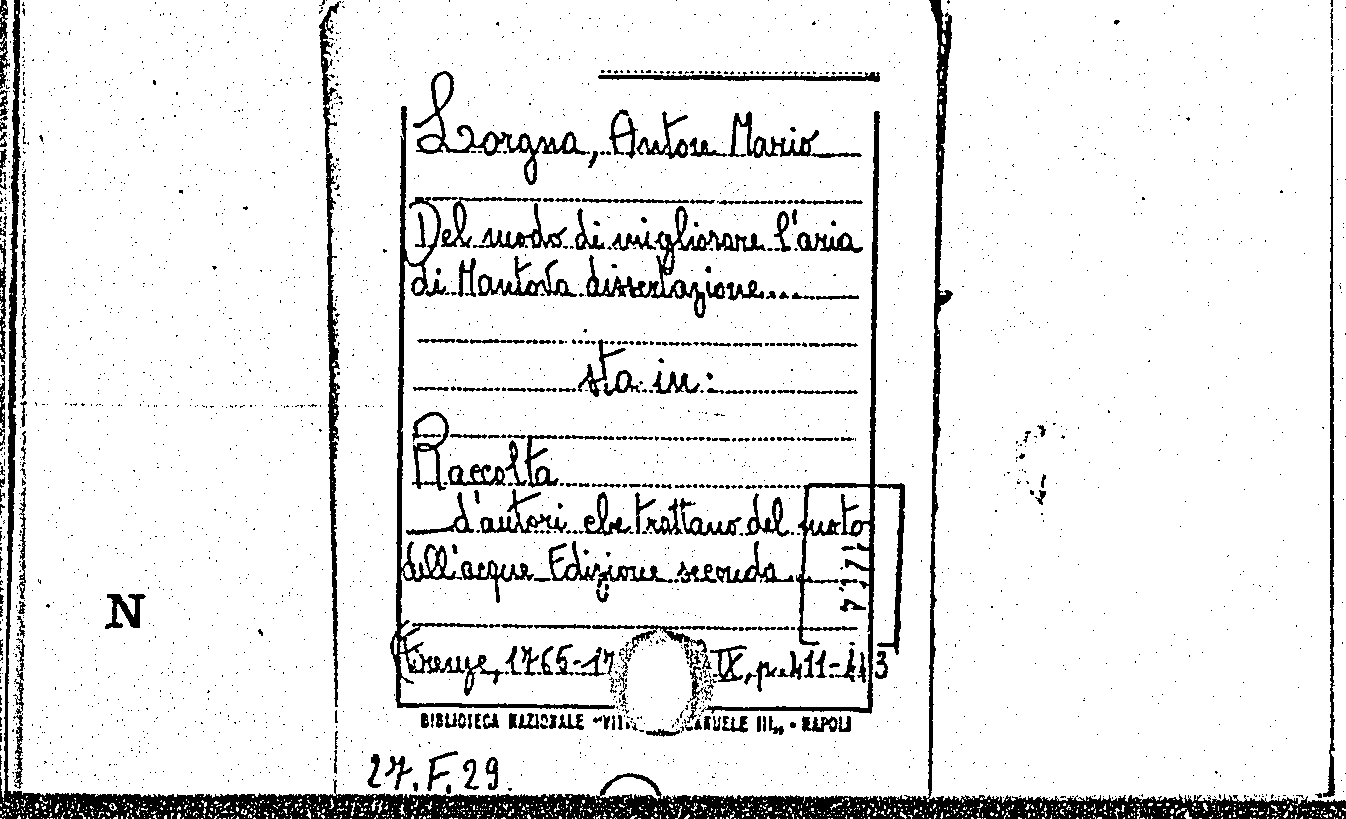 Lorgna, Antone Mario
Del modo di migliorare l'aria
di Mantova dissertazione...
sta in:
Raccolta
d'autori che trattano del moto
dell'acque Edizione seconda...
Firenze, 1765-17 IX, p. 411-413
BIBLIOTECA NAZIONALE "VITT ANUELE III„ - NAPOLI
27.F.29.
N